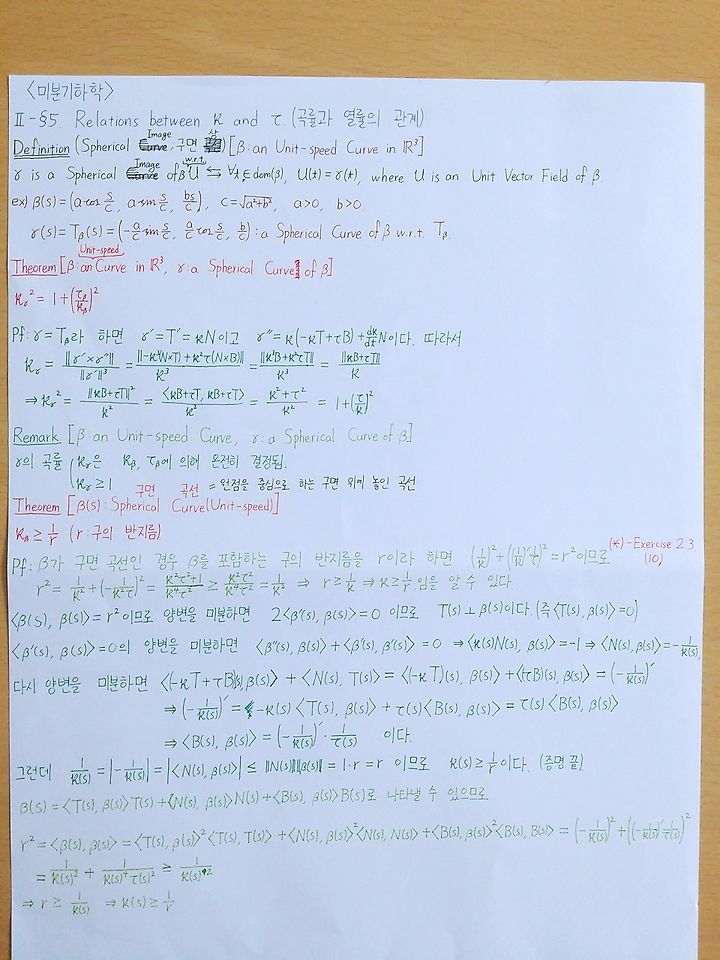 <미분기하학>
II-§5. Relations between κ and τ (곡률과 열률의 관계)
Definition (Spherical Image, 구면 상) [β: an Unit-speed Curve in ℝ³]
γ is a Spherical Image of β w.r.t. U ⇆ ∀t∈dom(β), U(t) = γ(t), where U is an Unit Vector Field of β
ex) β(s) = (a cos s/c, a sin s/c, bs/c), c=√(a²+b²), a>0, b>0
γ(s) = T_β(s) = (-a/c sin s/c, a/c cos s/c, b/c) : a Spherical Curve of β w.r.t. T_β.
Theorem [β: an Unit-speed Curve in ℝ³, γ: a Spherical Curve of β]
κ_γ² = 1+(τ_β/κ_β)²
Pf: γ = T_β라 하면 γ' = T' = κN이고 γ'' = κ(-κT+τB)+dκ/dt N이다. 따라서
κ_γ = ||γ'×γ''||/||γ'||³ = ||-κ³(N×T)+κ²τ(N×B)||/κ³ = ||κ³B+κ²τT||/κ³ = ||κB+τT||/κ
⇒ κ_γ² = ||κB+τT||²/κ² = <κB+τT, κB+τT>/κ² = (κ²+τ²)/κ² = 1+(τ/κ)²
Remark [β: an Unit-speed Curve, γ: a Spherical Curve of β]
γ의 곡률 κ_γ은 κ_β, τ_β에 의해 온전히 결정됨.
κ_γ ≥ 1
구면 곡선 = 원점을 중심으로 하는 구면 위에 놓인 곡선
Theorem [β(s): Spherical Curve (Unit-speed)]
κ_β ≥ 1/r (r: 구의 반지름)
(*)-Exercise 2.3 (10)
Pf: β가 구면 곡선인 경우 β를 포함하는 구의 반지름을 r이라 하면 (1/κ)²+((1/κ)' 1/τ)² = r²이므로
r² = 1/κ²+(-1/κ²τ)² = (κ²τ²+1)/κ⁴τ² ≥ κ²τ²/κ⁴τ² = 1/κ² ⇒ r ≥ 1/κ ⇒ κ ≥ 1/r 임을 알 수 있다
<β(s), β(s)> = r² 이므로 양변을 미분하면 2<β'(s), β(s)> = 0 이므로 T(s)⊥β(s)이다. (즉 <T(s), β(s)> = 0)
<β'(s), β(s)> = 0의 양변을 미분하면 <β''(s), β(s)> + <β'(s), β'(s)> = 0 ⇒ <κ(s)N(s), β(s)> = -1 ⇒ <N(s), β(s)> = -1/κ(s),
다시 양변을 미분하면 <(-κT+τB)(s), β(s)> + <N(s), T(s)> = <(-κT)(s), β(s)> + <(τB)(s), β(s)> = (-1/κ(s))'
⇒ (-1/κ(s))' = -κ(s)<T(s), β(s)> + τ(s)<B(s), β(s)> = τ(s)<B(s), β(s)>
⇒ <B(s), β(s)> = (-1/κ(s))' · 1/τ(s) 이다.
그런데 1/κ(s) = |-1/κ(s)| = |<N(s), β(s)>| ≤ ||N(s)||||β(s)|| = 1·r = r 이므로 κ(s) ≥ 1/r 이다. (증명 끝).
β(s) = <T(s), β(s)>T(s) + <N(s), β(s)>N(s) + <B(s), β(s)>B(s)로 나타낼 수 있으므로
r² = <β(s), β(s)> = <T(s), β(s)>²<T(s), T(s)> + <N(s), β(s)>²<N(s), N(s)> + <B(s), β(s)>²<B(s), B(s)> = (-1/κ(s))² + ((-1/κ(s))' 1/τ(s))²
= 1/κ(s)² + 1/κ(s)⁴τ(s)² ≥ 1/κ(s)²
⇒ r ≥ 1/κ(s) ⇒ κ(s) ≥ 1/r